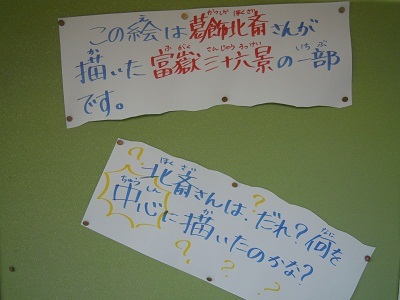 この絵は葛飾北斎さんが
描いた富嶽三十六景の一部
です。
北斎さんは、だれ?何を
中心に描いたのかな?